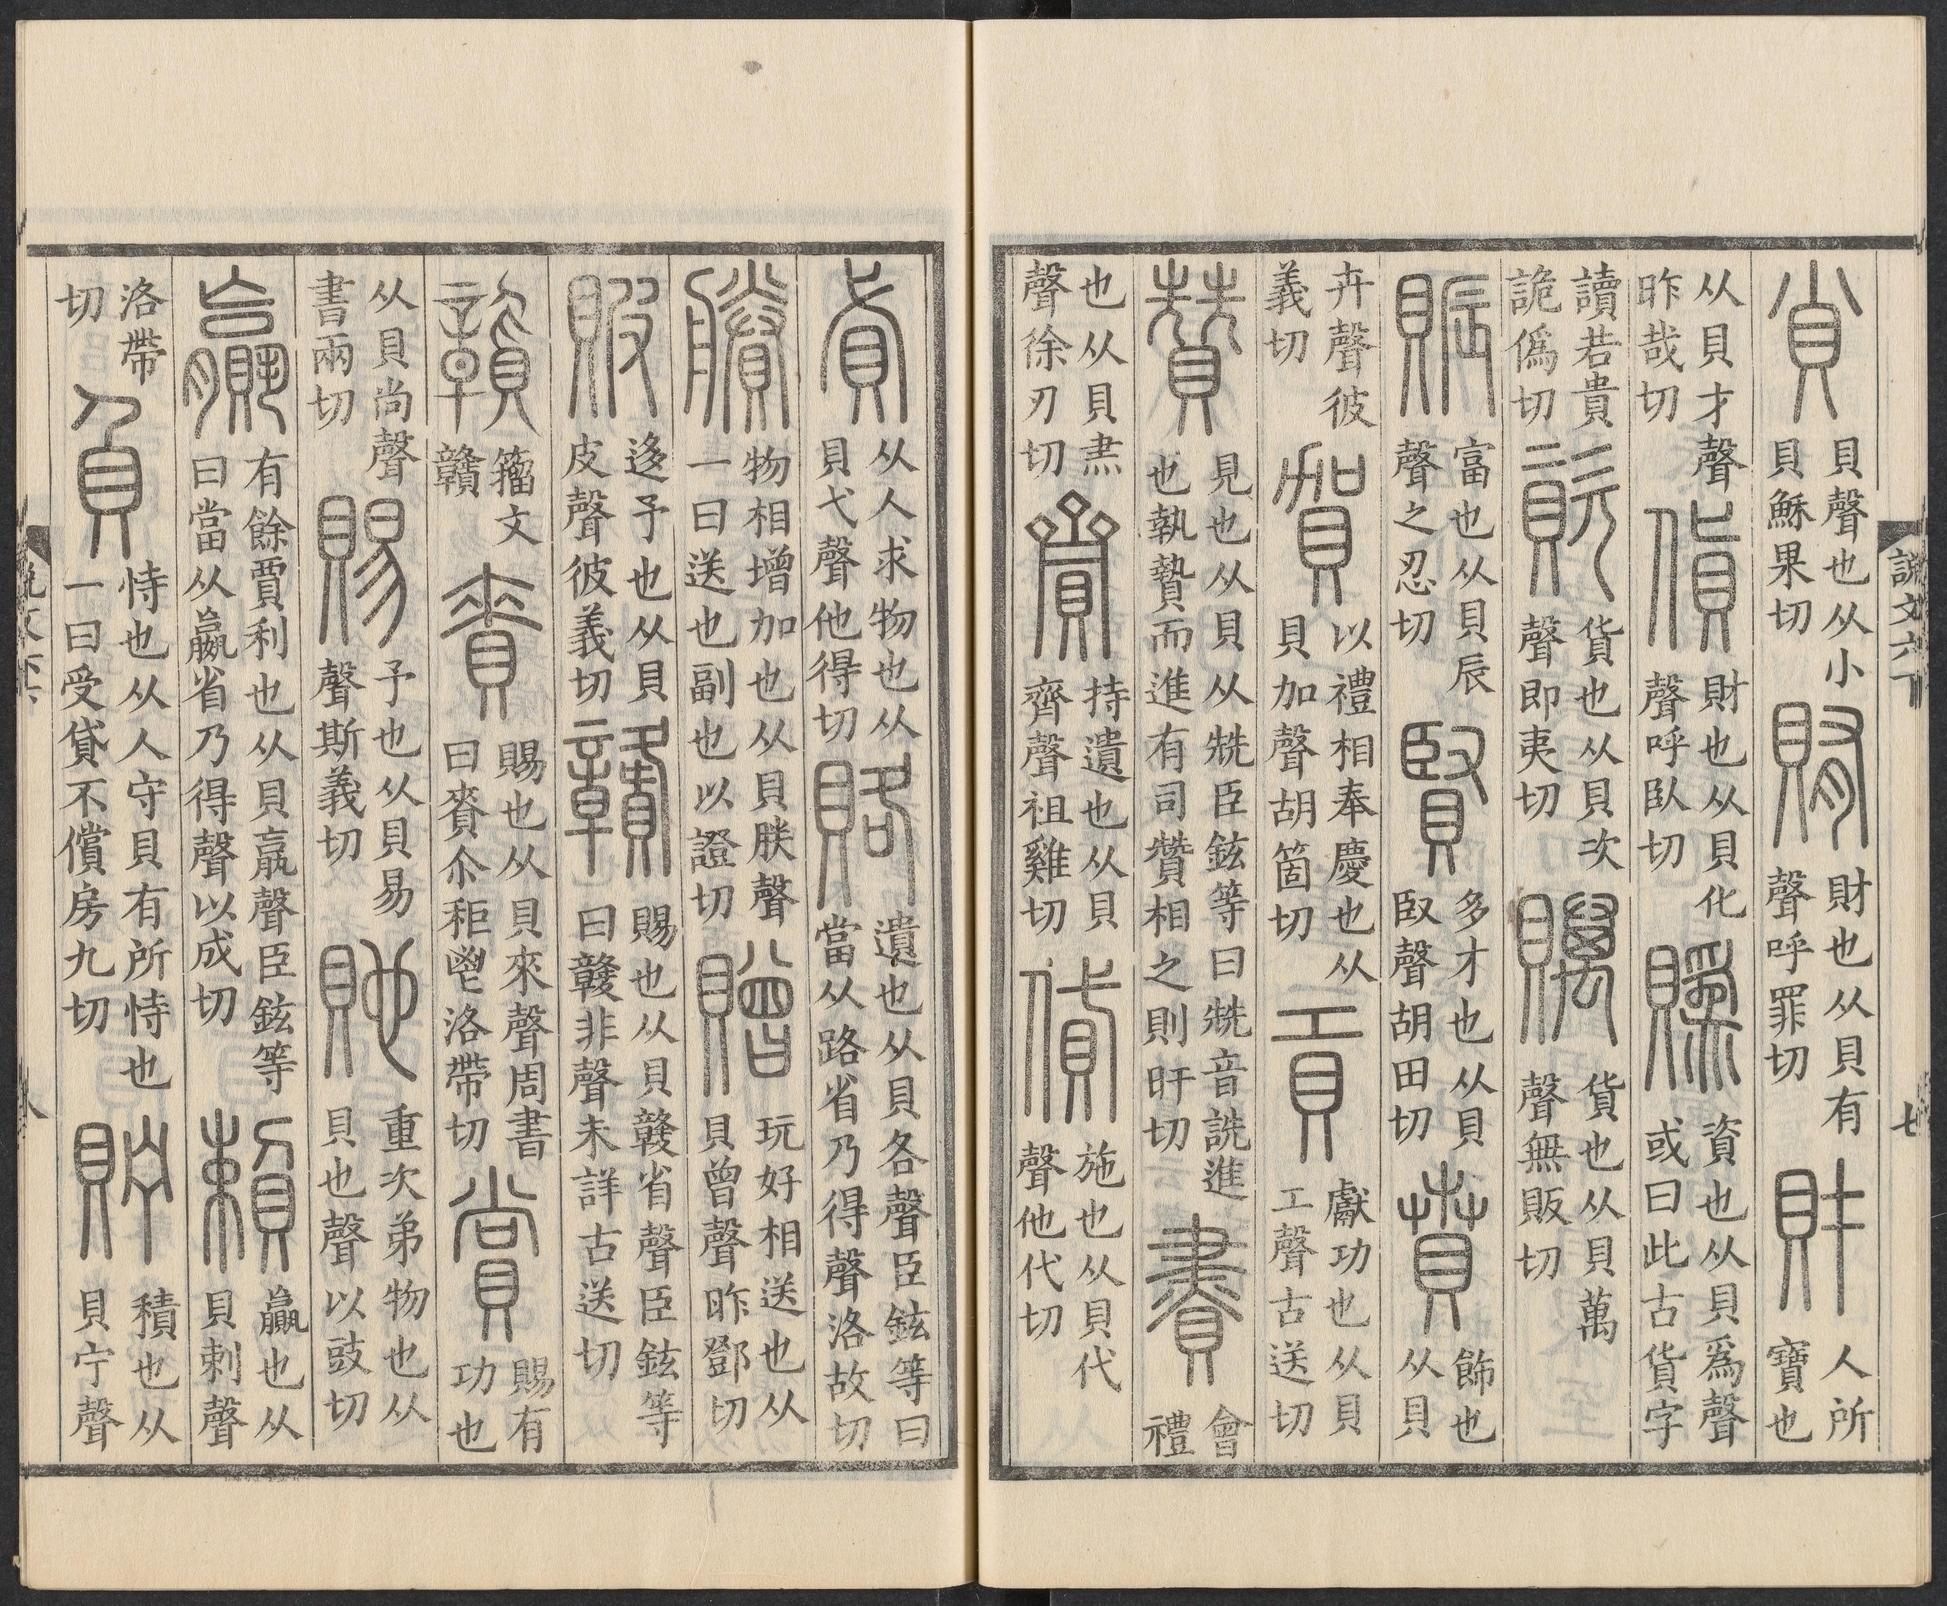 說文六下 七
𧴪 貝聲也从小貝穌果切 賄 財也从貝有聲呼罪切 財 人所寶也
从貝才聲昨哉切 貨 財也从貝化聲呼臥切 䞈 資也从貝爲聲或曰此古貨字
讀若貴詭僞切 資 貨也从貝次聲即夷切 贎 貨也从貝萬聲無販切
賑 富也从貝辰聲之忍切 賢 多才也从貝臤聲胡田切 賁 飾也从貝
卉聲彼義切 賀 以禮相奉慶也从貝加聲胡箇切 貢 獻功也从貝工聲古送切
贊 見也从貝从兟臣鉉等曰兟音詵進也執贄而進有司贊相之則旰切 賮 會禮
也从貝㶳聲徐刃切 齎 持遺也从貝齊聲祖雞切 貸 施也从貝代聲他代切
貣 从人求物也从貝弋聲他得切 賂 遺也从貝各聲臣鉉等曰當从路省乃得聲洛故切
賸 物相增加也从貝朕聲一曰送也副也以證切 贈 玩好相送也从貝曾聲昨鄧切
貱 迻予也从貝皮聲彼義切 贛 賜也从貝竷省聲臣鉉等曰竷非聲未詳古送切
𥫔 籀文贛 賚 賜也从貝來聲周書曰賚尒秬鬯洛帶切 賞 賜有功也
从貝尚聲書兩切 賜 予也从貝易聲斯義切 貤 重次弟物也从貝也聲以豉切
贏 有餘賈利也从貝𣎆聲臣鉉等曰當从嬴省乃得聲以成切 賴 贏也从貝剌聲
洛帶切 負 恃也从人守貝有所恃也一曰受貸不償房九切 貯 積也从貝宁聲